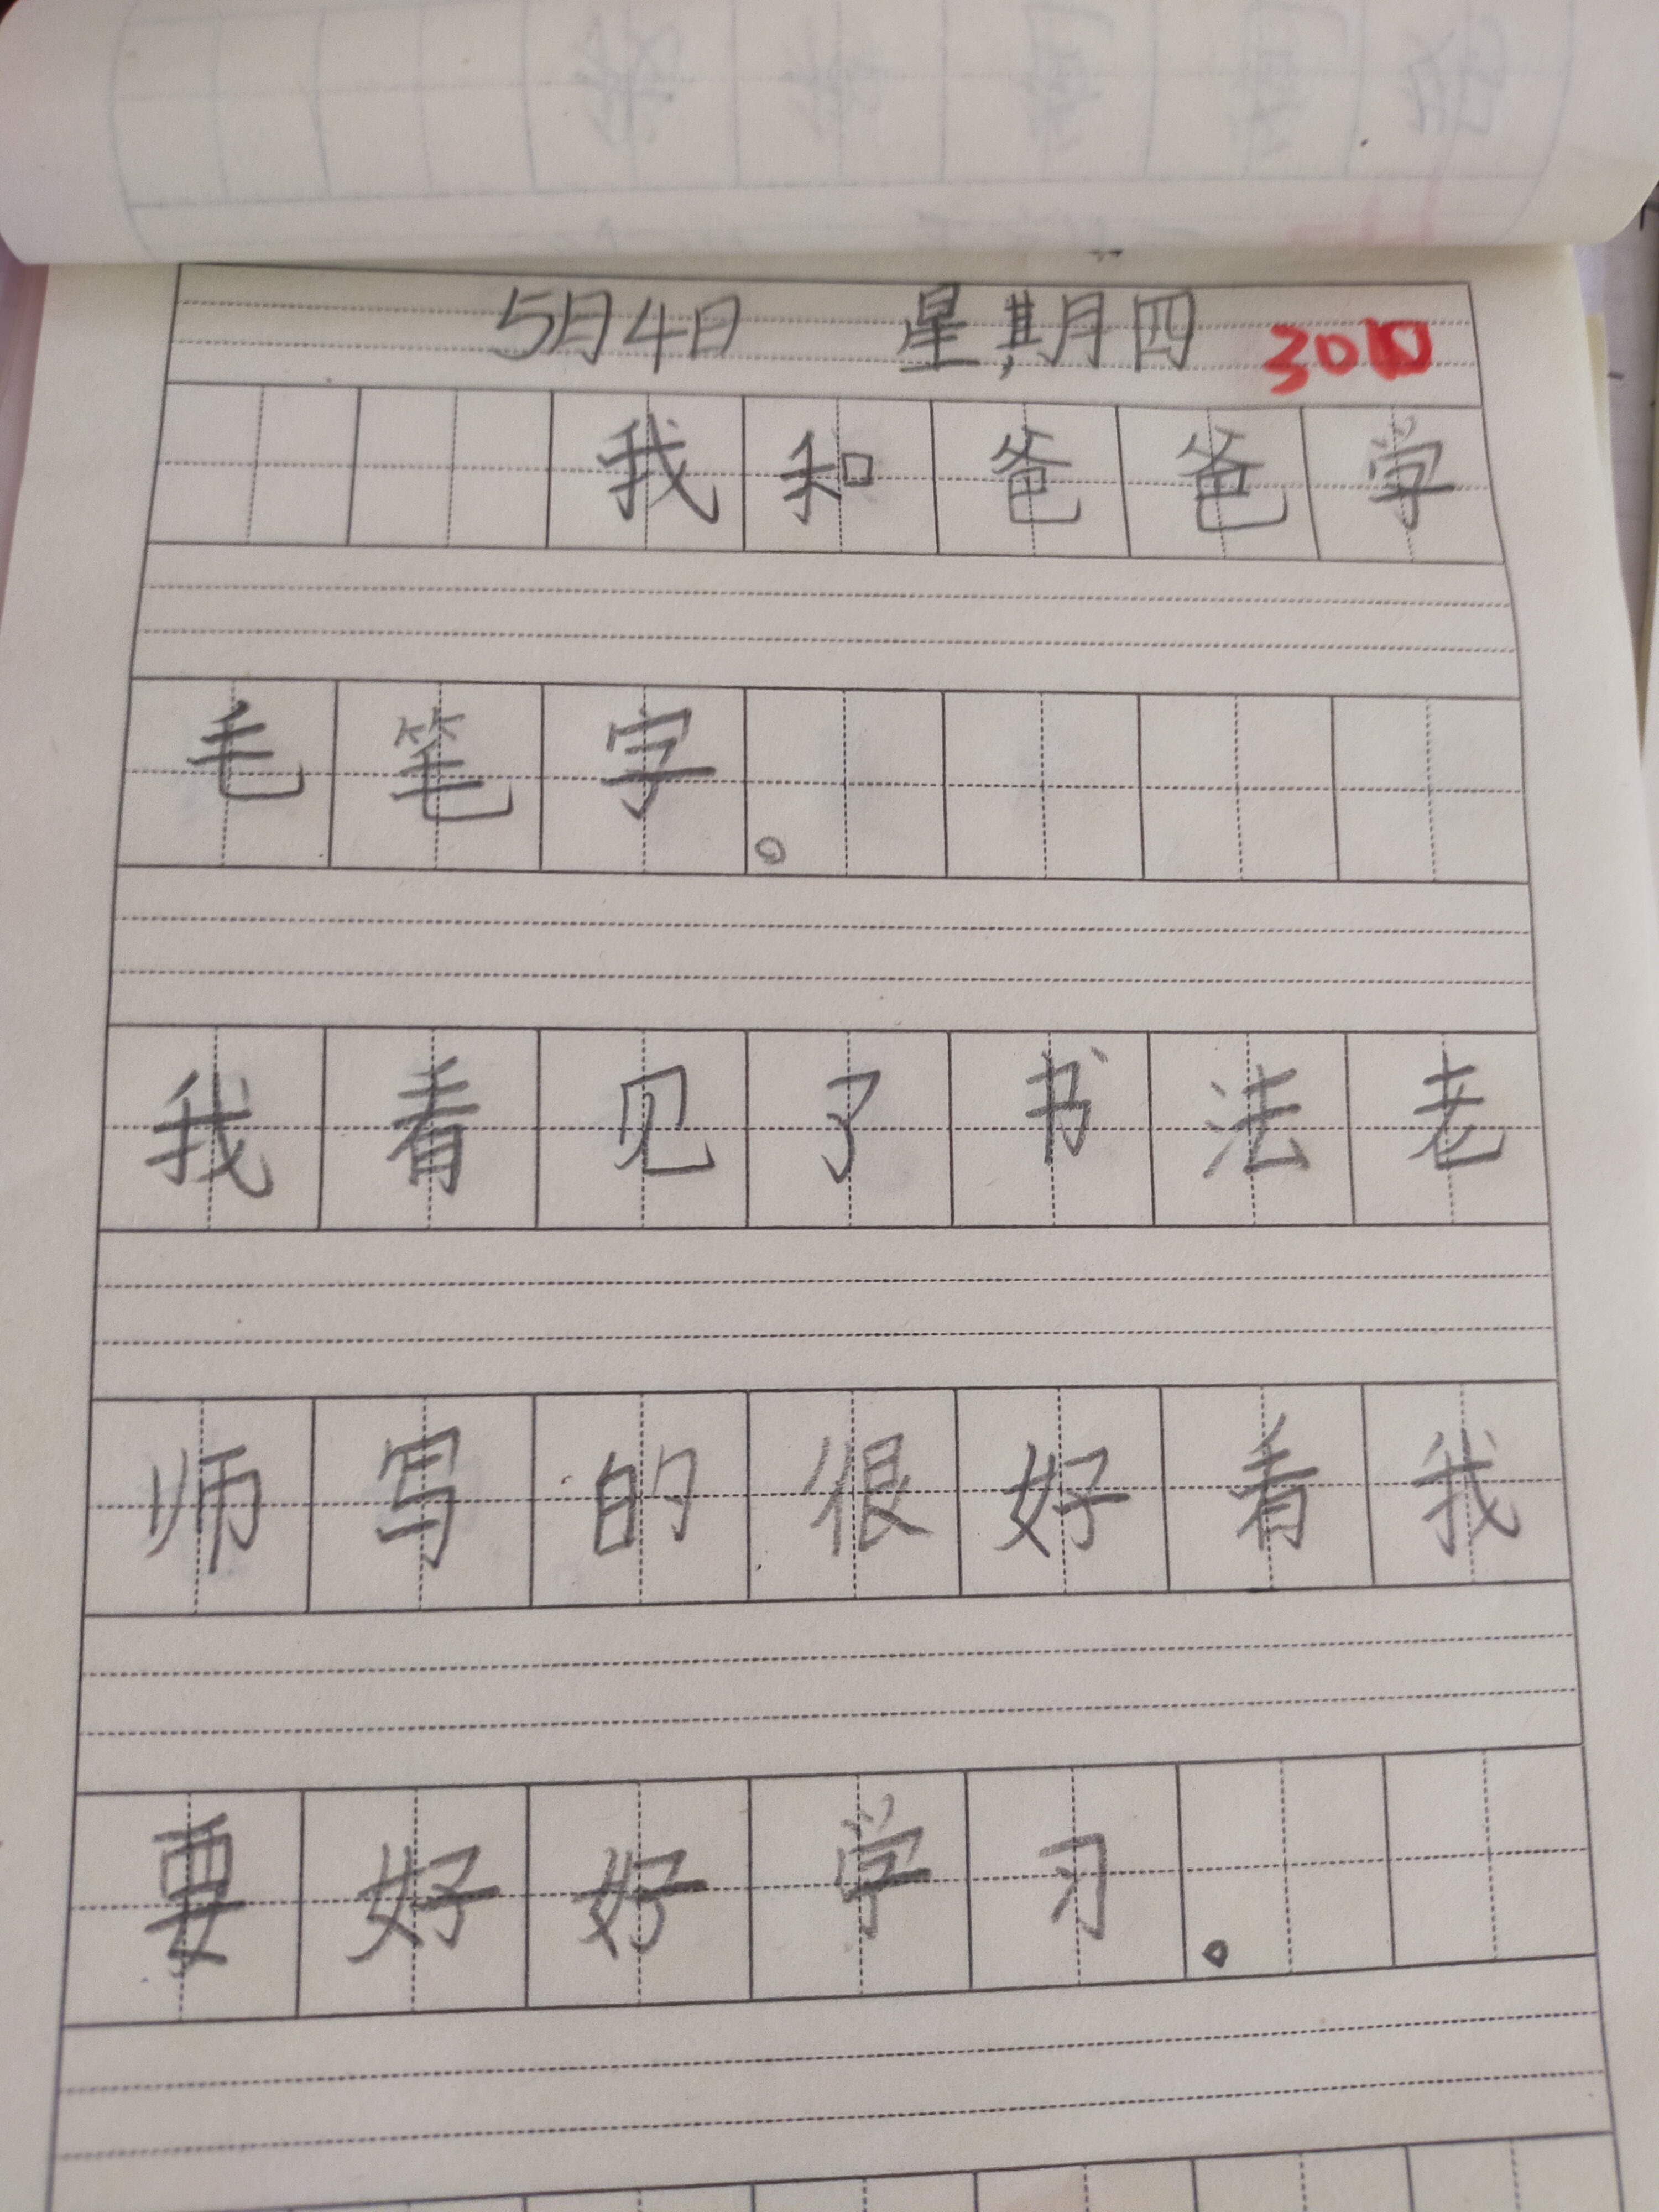 5月4日 星期四 30
我和爸爸学
毛笔字。
我看见了书法老
师写的很好看我
要好好学习。